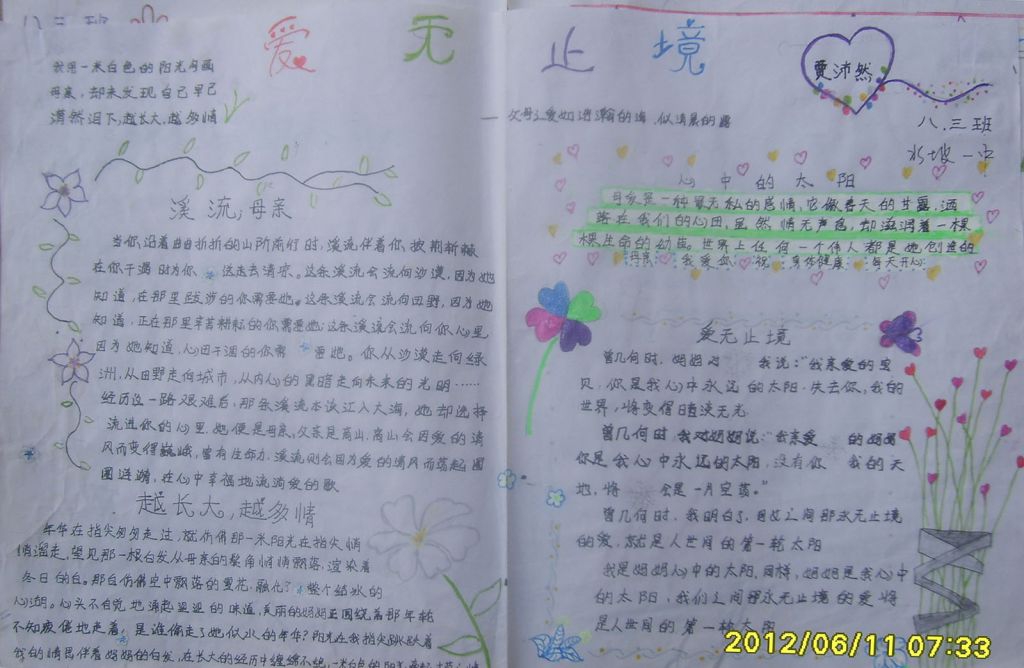 爱 无 止 境
我用一米白色的阳光勾画
母亲,却未发现自已早已
潸然泪下,越长大,越多情
溪流,母亲
当你沿着曲曲折折的山阶前行时,溪流伴着你披荆斩棘
在你干渴时为你 送去去清凉。这条溪流会流向沙漠,因为她
知道,在那里跋涉的你需要她。这条溪流会流向田野,因为她
知道,正在那里辛苦耕耘的你需要她;这条溪流会流向你心里
因为她知道,心田干涸的你需 要她。你从沙漠走向绿
洲,从田野走向城市,从内心的黑暗走向未来的光明……
经历这一路艰难后,那条溪流本该汇入大海,她却选择
流进你的心里,她便是母亲。父亲是高山,高山会因爱的清
风而变得巍峨,富有生命力,溪流则会因为爱的清风而荡起圈
圈涟漪,在心中幸福地流淌爱的歌
越长大,越多情
年华在指尖匆匆走过,就仿佛那一米阳光在指尖悄
悄溜走,望见那一根白发从母亲的鬓角悄悄飘落,渲染着
冬日的白。那白仿佛空中飘落的雪花,融化了 整个结冰的
心湖。心头不自觉地涌起
不知疲倦地走着,是谁偷走了她似水的年华?阳光在我指尖跳跃着
我的情思伴着妈妈的白发,在长大的经历中缠绵不绝,一米白色的阳光
贾沛然
八.三班
水坡一中
父母之爱如进瀚的海,似清晨的露
心中的太阳
母爱是一种最无私的感情,它像春天的甘露,洒
落在我们的心田,虽然悄无声息,却滋润着一棵
棵生命的幼苗。世界上任何一个伟人都是她创造的
母亲 我爱你 祝 身体健康 每天开心
爱无止境
曾几何时,妈妈对 我说:“我亲爱的宝
贝,你是我心中永远的太阳,失去你,我的
世界,将变得暗淡无光
曾几何时,我对妈妈说:“我亲爱 的妈妈
你是我心中永远的太阳,没有你 我的天
地,将 会是一片空荡。”
曾几何时,我明白了,母女之间那永无止境
的爱,就是人世间的第一轮太阳
我是妈妈心中的太阳,同样,妈妈是我心中
的太阳,我们之间那永无止境的爱将
是人世间的第一轮太阳
2012/06/11 07:33